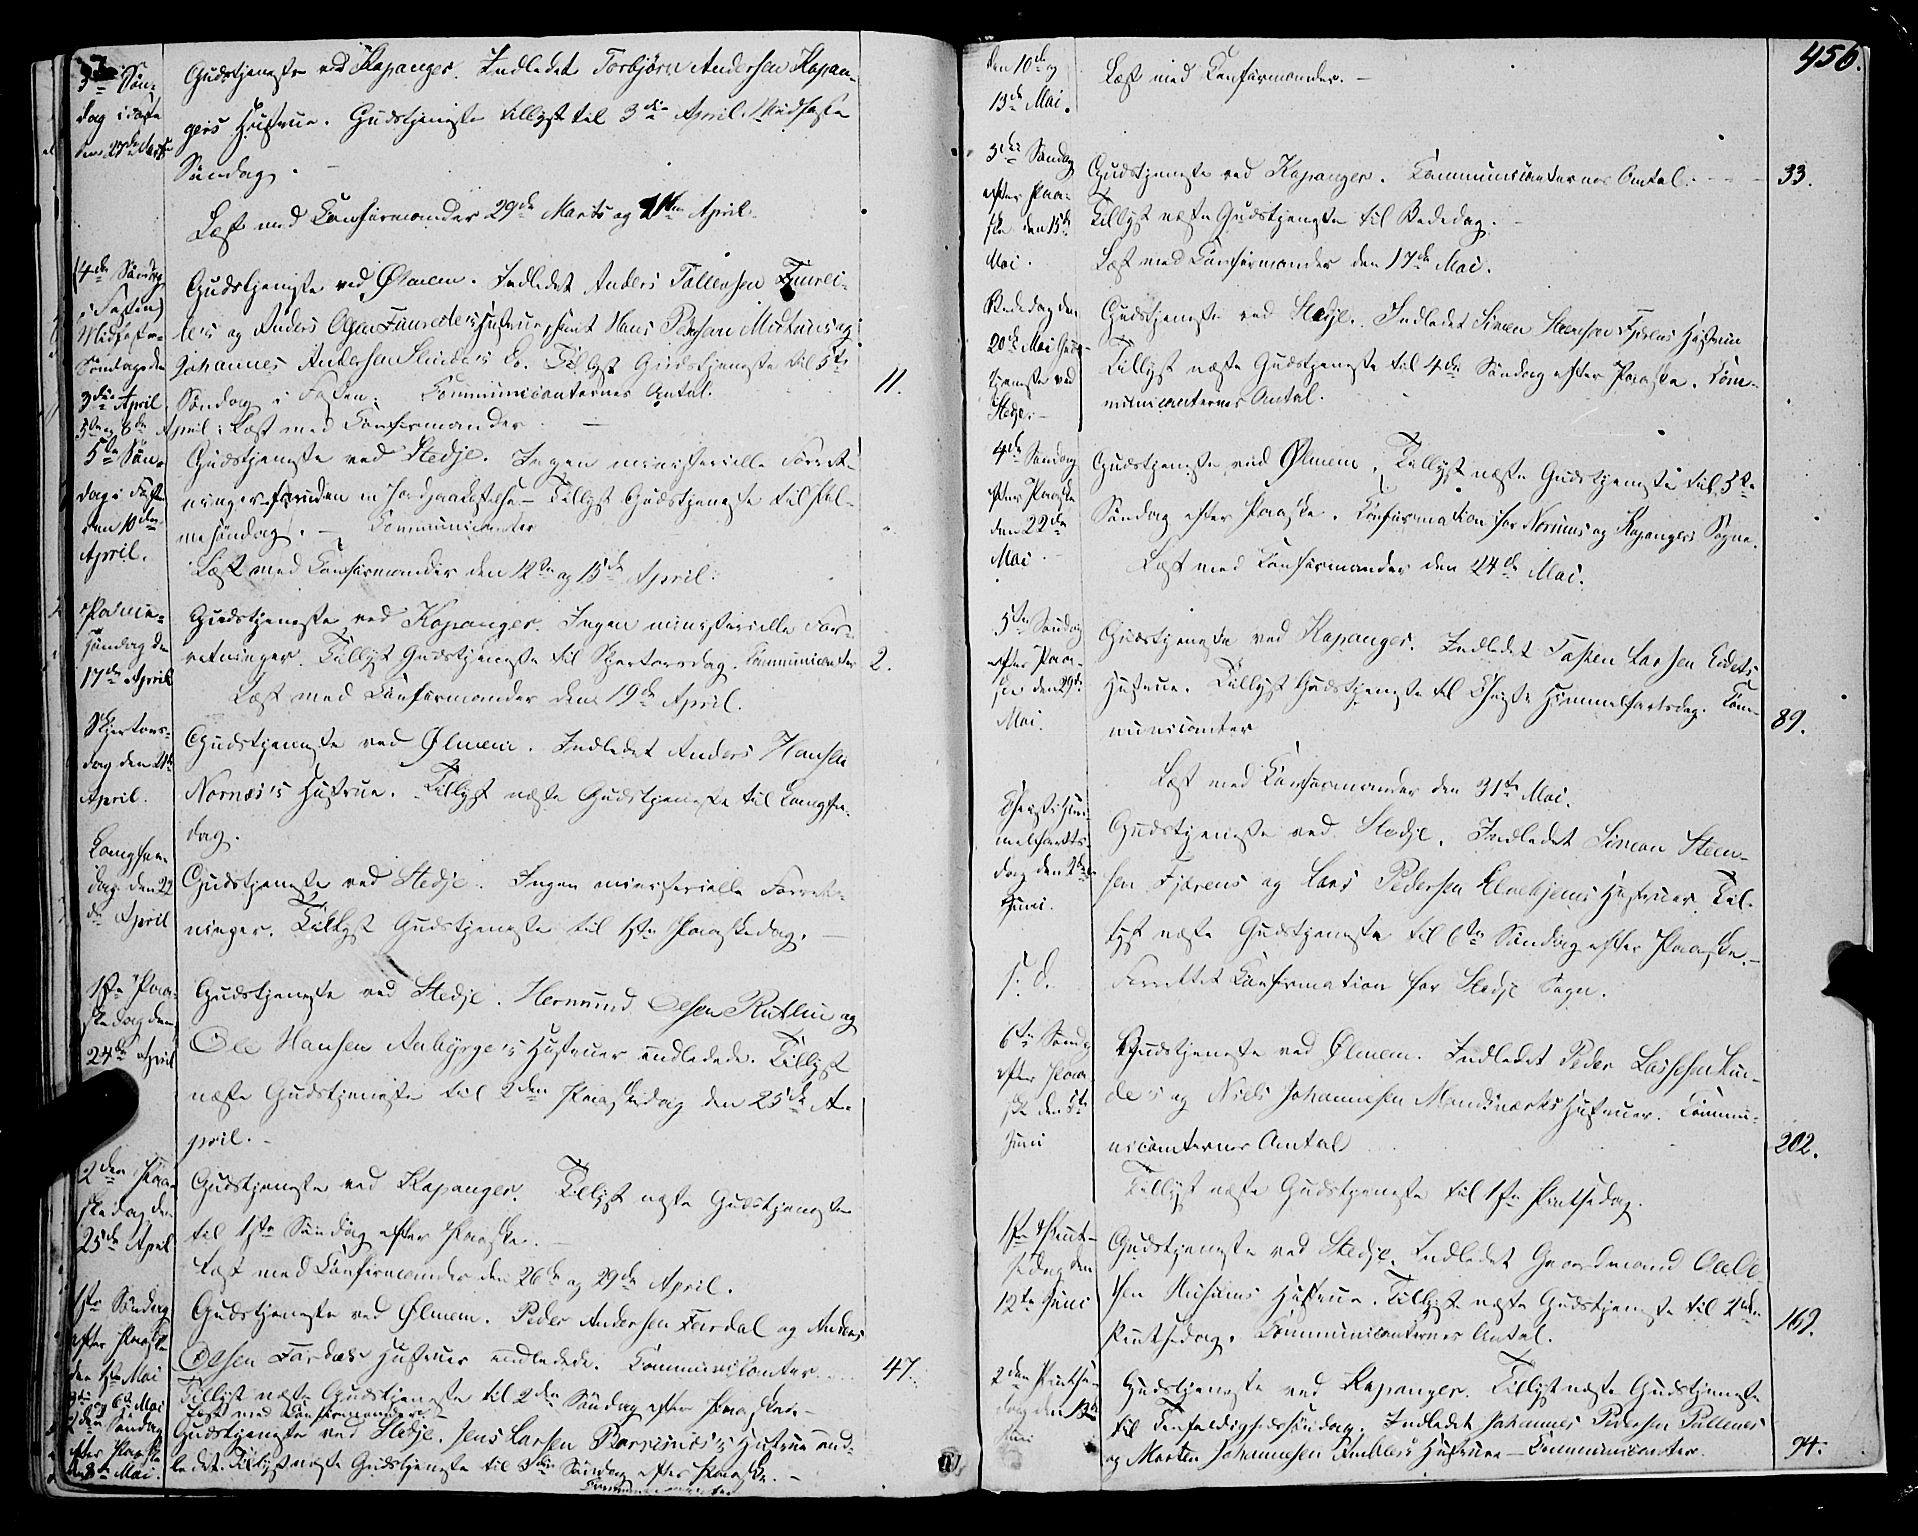 3die Søn-
dag i Faste
den 27de Marts
Gudstjeneste ved Kapanger. Indledet Torbjørn Andersen Kapan-
gers Hustrue. Gudstjeneste tillyst til 3die April Midfaste
Søndag.
Læst med Confirmander 29de Marts og April.
(4de Søndag
i Fasten)
Midfaste-
Søndag den
3die April
Gudstjeneste ved Ølmem. Indledet Anders Tollevsen
og Anders Olsen Hustrue, samt Hans
Johannes Andersen Do. Tillyst Gudstjeneste til 5te
Søndag i Fasten. Communicanternes Antal. 11.
5te og 8de April Læst med Confirmander.
5te Søn-
dag i Faste
den 10de
April.
Gudstjeneste ved Stedje. Ingen ministerielle Forret-
ninger foruden en Jordpaakastelse – Tillyst Gudstjeneste til Pal-
mesøndag. – Communicanter
Læst med Confirmander den 12te og 15de April.
Palme-
søndag den
17de April
Gudstjeneste ved Kapanger. Ingen ministerielle For-
retninger. Tillyst Gudstjeneste til Skjertorsdag. Communicanter 2.
Læst med Confirmander den 19de April.
Skjertors-
dag den 21de
April.
Gudstjeneste ved Ølmem. Indledet Anders Hansen
Nornæs's Hustrue. Tillyst næste Gudstjeneste til Langfre-
dag.
Langfre-
dag den 22
de April
Gudstjeneste ved Stedje. Ingen ministerielle Forret-
ninger. Tillyst Gudstjeneste til 1ste Paaskedag. –
1ste Paa-
skedag den
24de April
Gudstjeneste ved Stedje. Hermund Olsen Rutlin og
Ole Hansen Aabyrge's Hustruer indledede. Tillyst
næste Gudstjeneste til 2den Paaskedag den 25de A-
pril. –
2den Paa-
skedag den
25de April
Gudstjeneste ved Kapanger. Tillyst næste Gudstjeneste
til 1ste Søndag efter Paaske. –
Læst med Confirmander den 26de og 29de April.
1ste Søndag
efter Paaske
den 1ste Mai
Gudstjeneste ved Ølmem. Peder Andersen Fardal og Anders
Olsen Fardals Hustruer indledede. Communicanter 47.
Tillyst næste Gudstjeneste til 2den Søndag efter Paaske. –
3die og 6te Mai Læst med Confirmander. –
2den Søndag
efter Paaske
den 8de Mai.
Gudstjeneste ved Stedje. Jens Larsen Hustrue ind-
ledet. Tillyst næste Gudstjeneste til 3die Søndag efter Paaske. –
Communicanter
456.
den 10de og
13de Mai.
Læst med Confirmander. –
3die Søndag
efter Paa-
ske den 15de
Mai.
Gudstjeneste ved Kapanger. Communicanternes Antal. – – – 33.
Tillyst næste Gudstjeneste til Bededag. –
Læst med Confirmander den 17de Mai.
Bededag den
20de Mai Guds-
tjeneste ved
Stedje. –
Gudstjeneste ved Stedje. Indledet Simen Steensen Fjærens Hustrue
Tillyst næste Gudstjeneste til 4de Søndag efter Paaske. Com-
municanternes Antal.
4de Søndag
efter Paaske
den 22de
Mai. –
Gudstjeneste ved Ølmem. Tillyst næste Gudstjeneste til 5te
Søndag efter Paaske. Confirmation for Nornæs og Kapangers Sogne.
Læst med Confirmander den 24de Mai.
5te Søndag
efter Paa-
ske den 29de
Mai.
Gudstjeneste ved Kapanger. Indledet Larsen
Hustrue. Tillyst Gudstjeneste til Christi Himmelfartsdag. Com-
municanter 89.
Læst med Confirmander den 31te Mai.
Christi Him-
melfarts-
dag den 2den
Juni.
Gudstjeneste ved Stedje. Indledet Simon Steen-
sen Fjærens og Lars Pedersen Hustruer. Til-
lyst næste Gudstjeneste til 6te Søndag efter Paaske. –
s. d. Forrettet Confirmation for Stedje Sogn.
6te Søndag
efter Paa-
ske den 5te
Juni
Gudstjeneste ved Ølmem. Indledet Peder Lassesen
og Niels Johannesen Hustruer. Commu-
nicanternes Antal 202.
Tillyst næste Gudstjeneste til 1ste Pintsedag.
1ste Pint-
sedag den
12te Juni
Gudstjeneste ved Stedje. Indledet
Hustrue. Tillyst næste Gudstjeneste til 2den
Pintsedag. Communicanternes Antal. 169.
2den Pintse-
dag den 13de
Juni
Gudstjeneste ved Kapanger. Tillyst næste Gudstjeneste
til Trefoldighedssøndag. Indledet Johannes Pedersen
og Morten Johannesen Amble's Hustruer – Communicanter. 94.